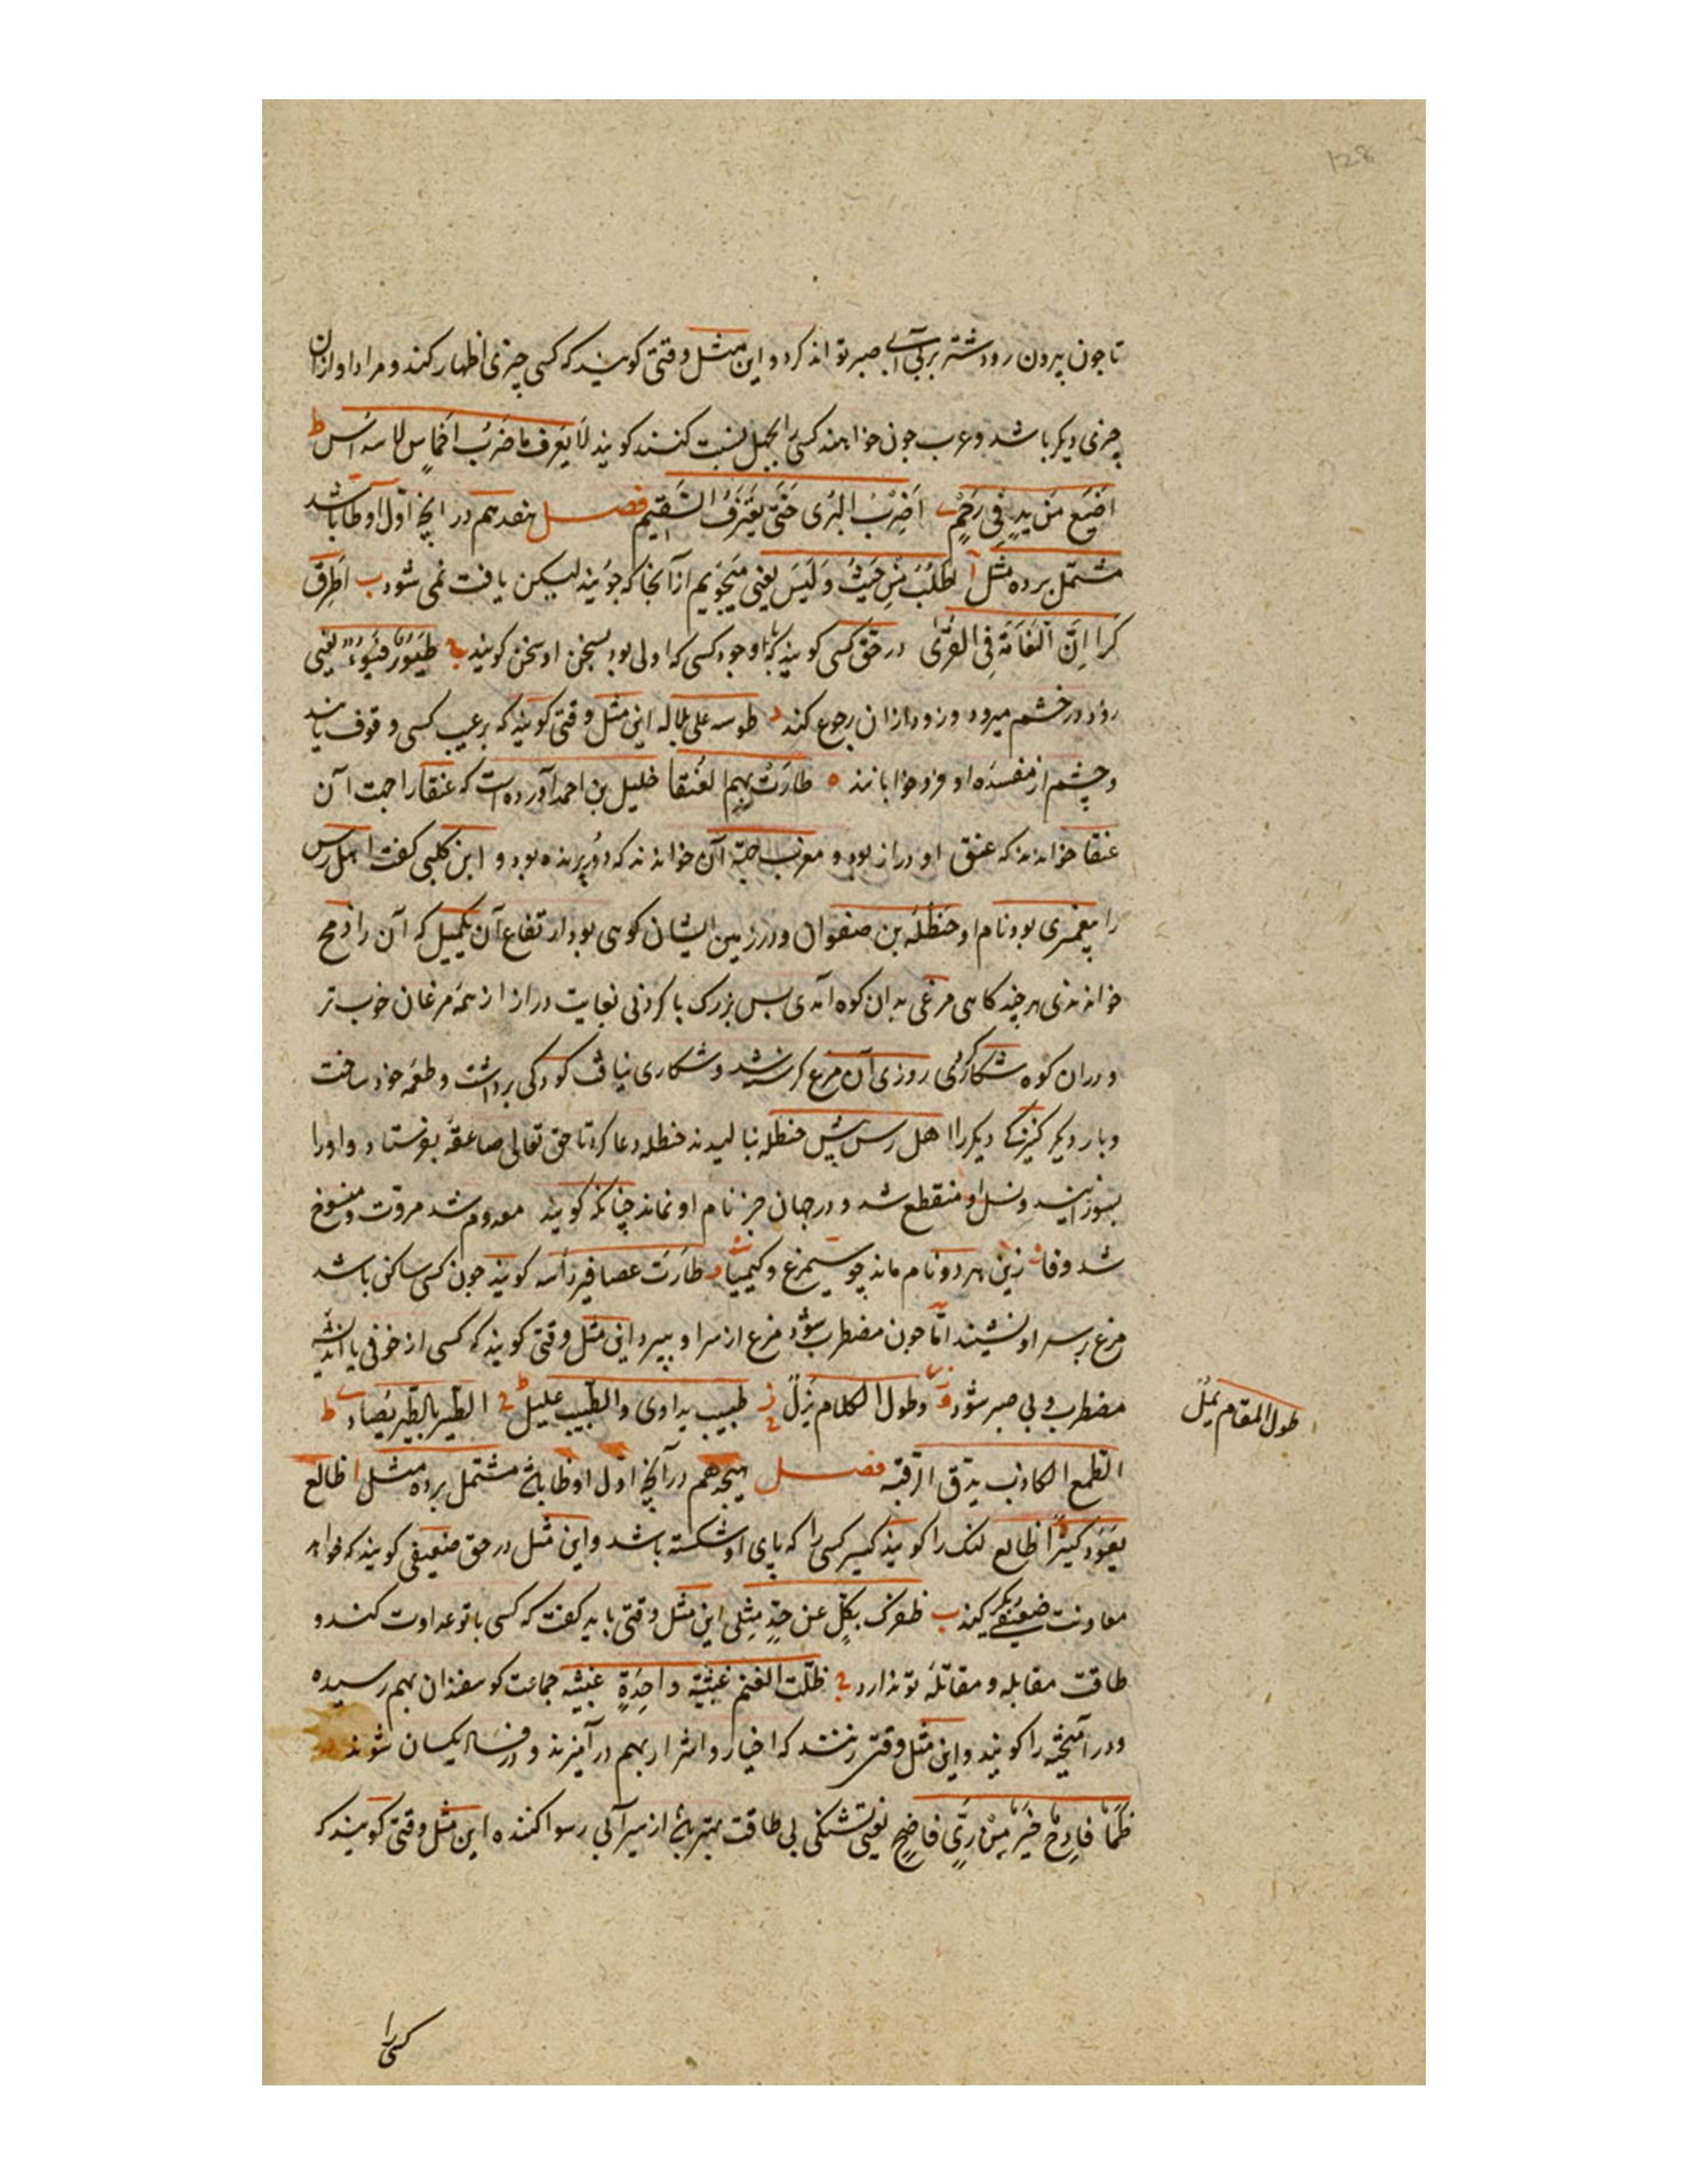 تا چون بیرون رود شتر بر بی آبی صبر تواند کرد و این مثل وقتی کویند که کسی چیزی اظهار کند و مراد او ازان
چیزی دیکر باشد و عرب چون خواهند کسی را بجهل نسبت کنند کویند لا یعرف ما ضرب اخماس لاسداس ط
اضیع من ید فی رحم ی اضرب البری حتی یعترف السقیم فصل هفدهم در آنچه اول او طا باشد
مشتمل بر ده مثل آ اطلب من حیث و لیس یعنی میجویم از آنجا که جویند لیکن یافت نمی شود ب اطرق
کرا ان النعامة فی القری در حق کسی کویند که با وجود کسی که اولی بود بسخن او سخن کویند ج طیور فیوء یعنی
زود در خشم میرود و زود ازان رجوع کند د این مثل وقتی کویند که بر عیب کسی وقوف یابند
و چشم از مفسده او فرو خوابانند ه طارت بهم العنقا خلیل بن احمد آورده است که عنقا را جهت آن
عنقا خوانند که عنق او دراز بود و مغرب جهة آن خوانند که دور پرنده بود و ابن کلبی کفت اهل رس
را پیغمبری بود نام او حنظله بن صفوان و در زمین ایشان کوهی بود ارتفاع آن یکمیل که آن را دمح
خواندندی هر چند کاهی مرغی بدان کوه آمدی بس بزرک با کردنی بغایت دراز از همه مرغان خوب تر
و دران کوه شکار کردی روزی آن مرغ کرسنه شد و شکاری نیافت کودکی برداشت و طعمه خود ساخت
و بار دیکر کنیزکی دیکر را اهل رس پیش حنظله بنالیدند حنظله دعا کرد تا حق تعالی صاعقه بفرستاد و او را
بسوزانید و نسل او منقطع شد و در جهان جز نام او نماند چنانکه کویند معدوم شد مروت و منسوخ
شد وفا زین هر دو نام ماند چو سیمرغ و کیمیا و طارت عصافیر راسه کویند چون کسی ساکن باشد
مرغ بر سر او نشیند اما چون مضطرب شود مرغ از سر او بپرد این مثل وقتی کویند که کسی از خوفی یا اندیشه
مضطرب و بی صبر شود و طول الکلام یزل ز طبیب یداوی و الطبیب علیل ح الطیر بالطیر یصاد ط
طول المقام یمل
الطمع الکاذب یدق الرقبه فصل هیجدهم در آنچه اول او ظا باشد مشتمل بر ده مثل ا ظالع
یعود کسیرا ظالع لنک را کویند کسیر کسی را که پای او شکسته باشد و این مثل در حق ضعیفی کویند که خواهد
معاونت ضعیفی دیکر کند ب ظفرک یکل عن حد مثلی این مثل وقتی باید کفت که کسی با تو عداوت کند و
طاقت مقابله و مقاتله تو ندارد ج ظلت الغنم عبیثة واحدة عبیثه جماعت کوسفندان بهم رسیده
و در آمیخته را کویند و این مثل وقتی زنند که اخیار و اشرار بهم در آمیزند و در فساد یکسان شوند
ظما فادح خیر من ری فاضح یعنی تشنکی بی طاقت بهتر باشد از سیرآبی رسوا کننده این مثل وقتی کویند که
کسی را
128